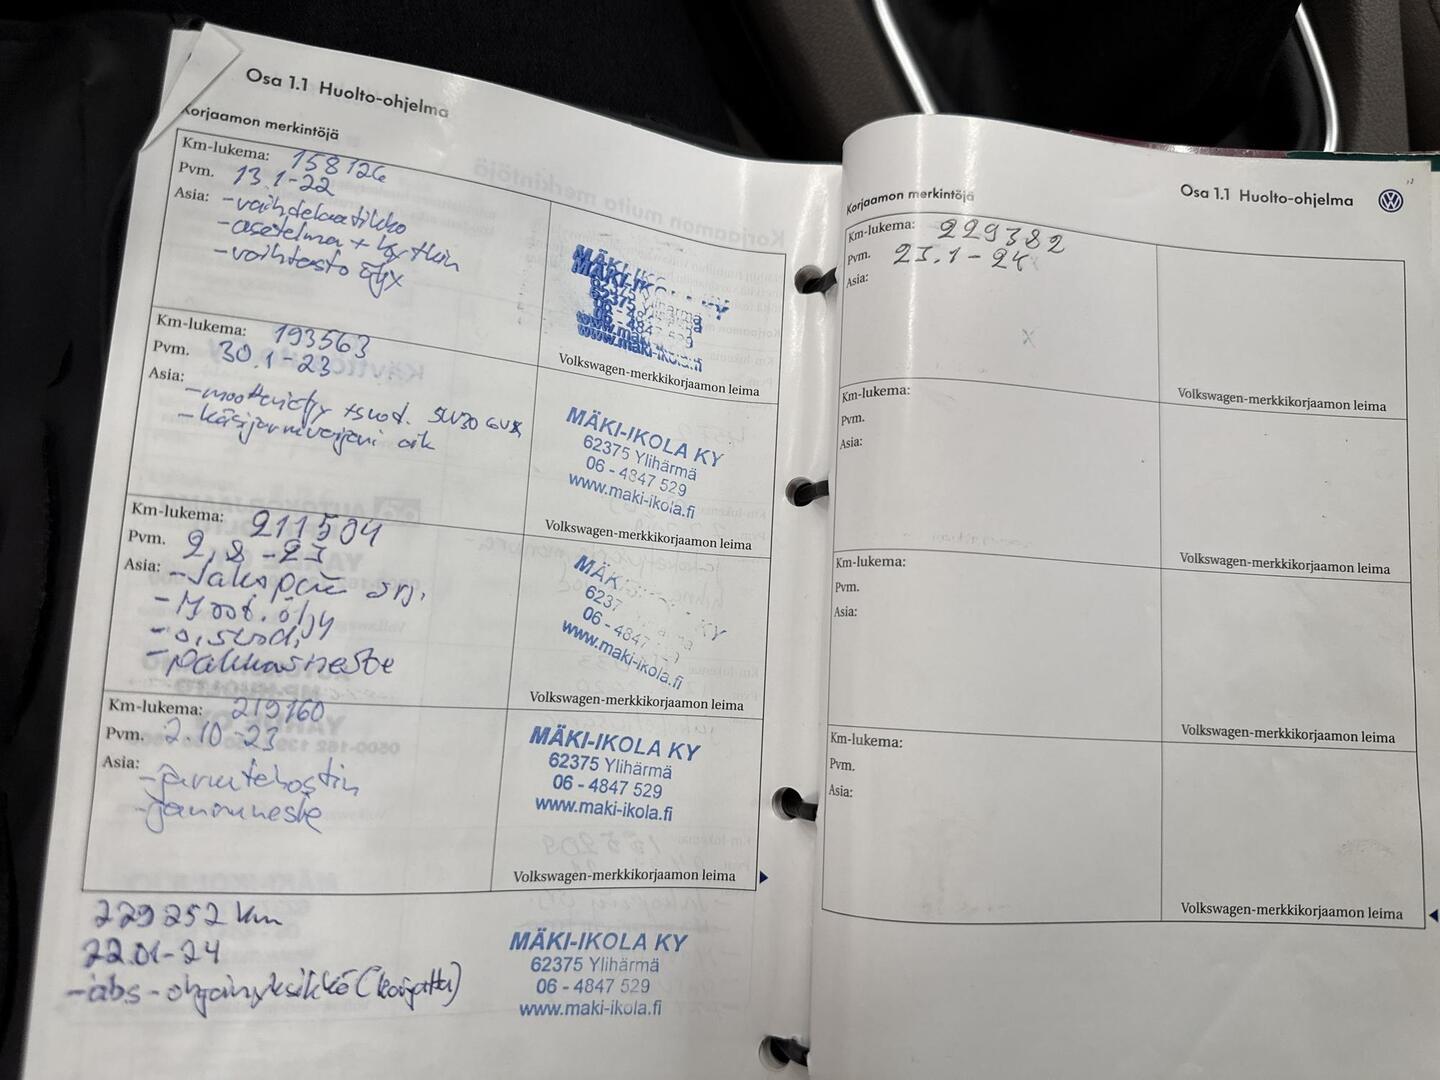 Osa 1.1 Huolto-ohjelma
Korjaamon merkintöjä
Km-lukema: 158126
Pvm. 13.1-22
Asia: -vaihdelaatikko
-asetelma + kytkin
-vaihteisto öljy
MÄKI-IKOLA KY
62375 Ylihärmä
06 - 4847 529
www.maki-ikola.fi
Volkswagen-merkkikorjaamon leima
Km-lukema: 193563
Pvm. 30.1-23
Asia:
-moottoriöljy +suod. 5W30
-käsijarruvaijeri oik
MÄKI-IKOLA KY
62375 Ylihärmä
06 - 4847 529
www.maki-ikola.fi
Volkswagen-merkkikorjaamon leima
Km-lukema: 211504
Pvm. 2.8-23
Asia: -Jakopää srj.
-Moot. öljy
-ö.suod.
-pakkasneste
MÄKI KY
6237
06 - 4847
www.maki-ikola.fi
Volkswagen-merkkikorjaamon leima
Km-lukema: 219160
Pvm. 2.10-23
Asia:
-jarrutehostin
-jarruneste
MÄKI-IKOLA KY
62375 Ylihärmä
06 - 4847 529
www.maki-ikola.fi
Volkswagen-merkkikorjaamon leima
229252 km
22.01-24
-abs-ohjainyksikkö (korjattu)
MÄKI-IKOLA KY
62375 Ylihärmä
06 - 4847 529
www.maki-ikola.fi
Korjaamon merkintöjä
Osa 1.1 Huolto-ohjelma
Km-lukema: 229382
Pvm. 23.1-24
Asia:
Volkswagen-merkkikorjaamon leima
Km-lukema:
Pvm.
Asia:
Volkswagen-merkkikorjaamon leima
Km-lukema:
Pvm.
Asia:
Volkswagen-merkkikorjaamon leima
Km-lukema:
Pvm.
Asia:
Volkswagen-merkkikorjaamon leima